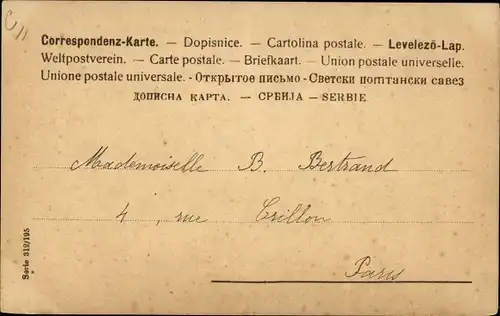 Correspondenz-Karte. — Dopisnice. — Cartolina postale. — Levelező-Lap.
Weltpostverein. — Carte postale. — Briefkaart. — Union postale universelle.
Unione postale universale. - Открытое письмо - Светски поштански савез
ДОПИСНА КАРТА. — СРБИЈА — SERBIE
Mademoiselle B. Bertrand
4, rue Crillon
Paris
Serie 312/195